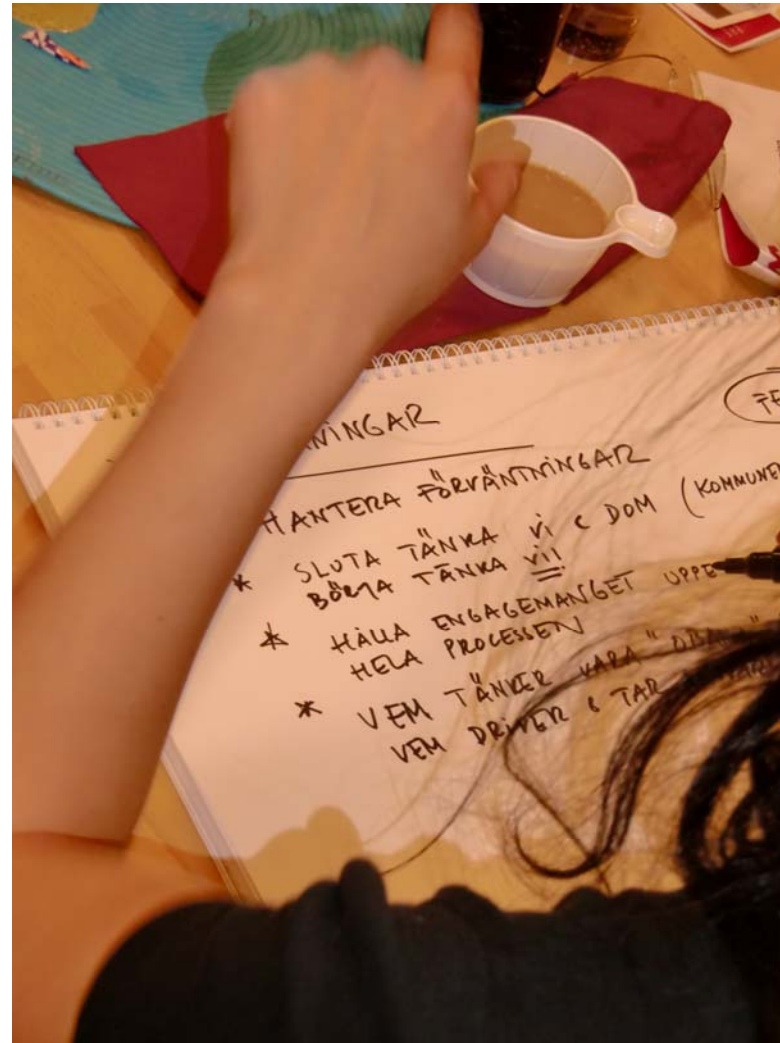 NINGAR
HANTERA FÖRVÄNTNINGAR
* SLUTA TÄNKA Vi & DOM (KOMMUNEN
BÖRJA TÄNKA Vi!
* HÅLLA ENGAGEMANGET UPPE
HELA PROCESSEN
* VEM TÄNKER VARA
VEM DRIVER & TAR